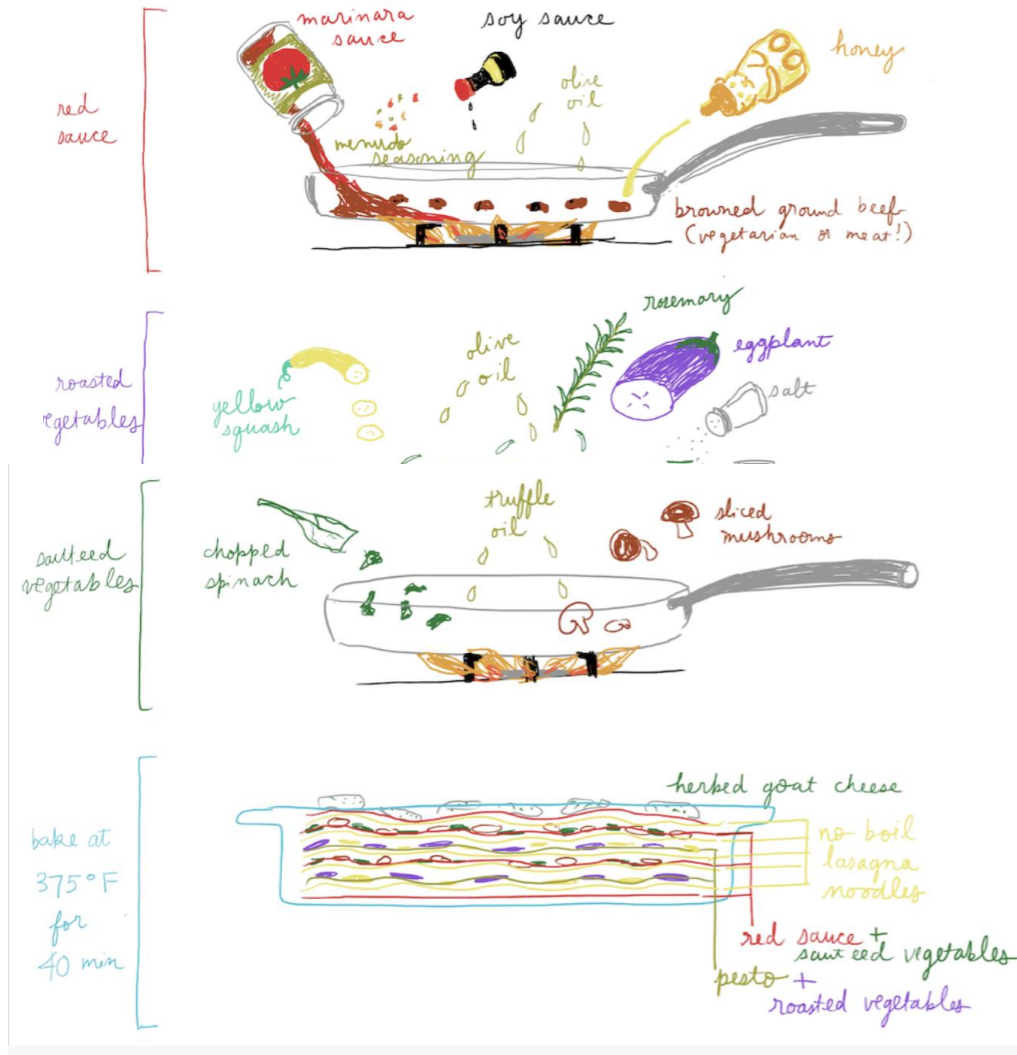 red
sauce
marinara
sauce
soy sauce
olive
oil
honey
menudo
seasoning
browned ground beef
(vegetarian or meat!)
roasted
vegetables
yellow
squash
olive
oil
rosemary
eggplant
salt
sauteed
vegetables
chopped
spinach
truffle
oil
sliced
mushrooms
bake at
375°F
for
40 min
herbed goat cheese
no boil
lasagna
noodles
red sauce +
sauteed vegetables
pesto +
roasted vegetables